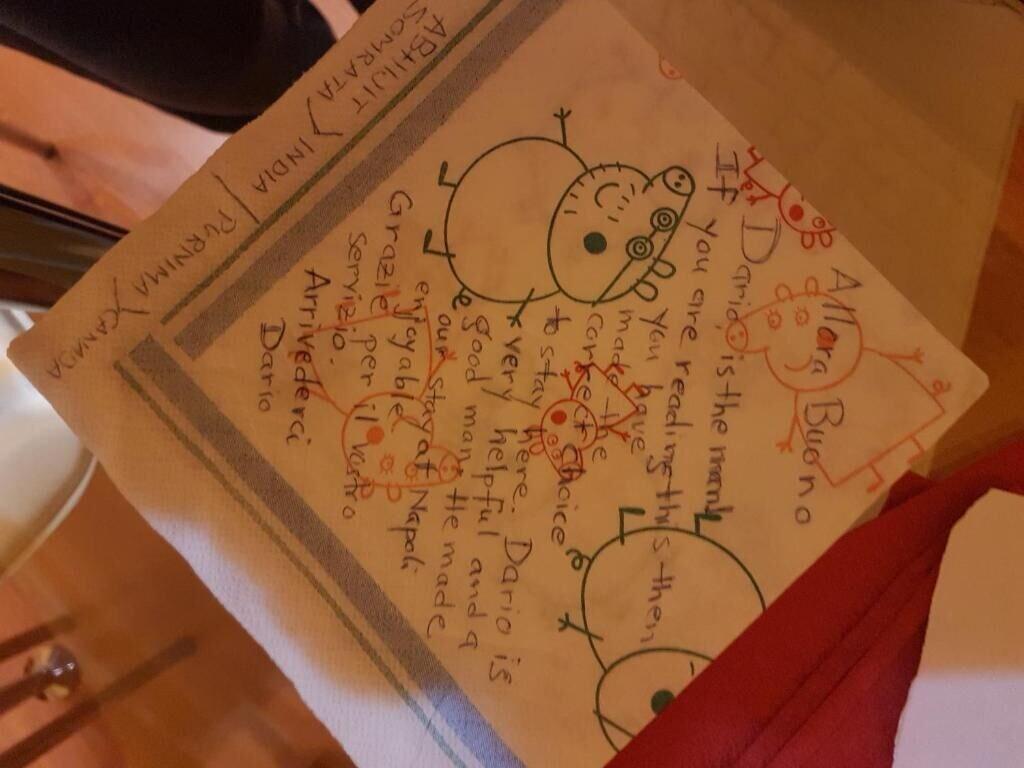 Allora Buono
Dario, is the man!
If you are reading this then
you have
made the
correct choice
to stay here. Dario is
very helpful and a
good man. He made
our stay at Napoli
enjoyable
Grazie per il vostro
servizio.
Arrivederci
Dario
ABHIJIT
SOMRATA } INDIA / PURNIMA } CANADA